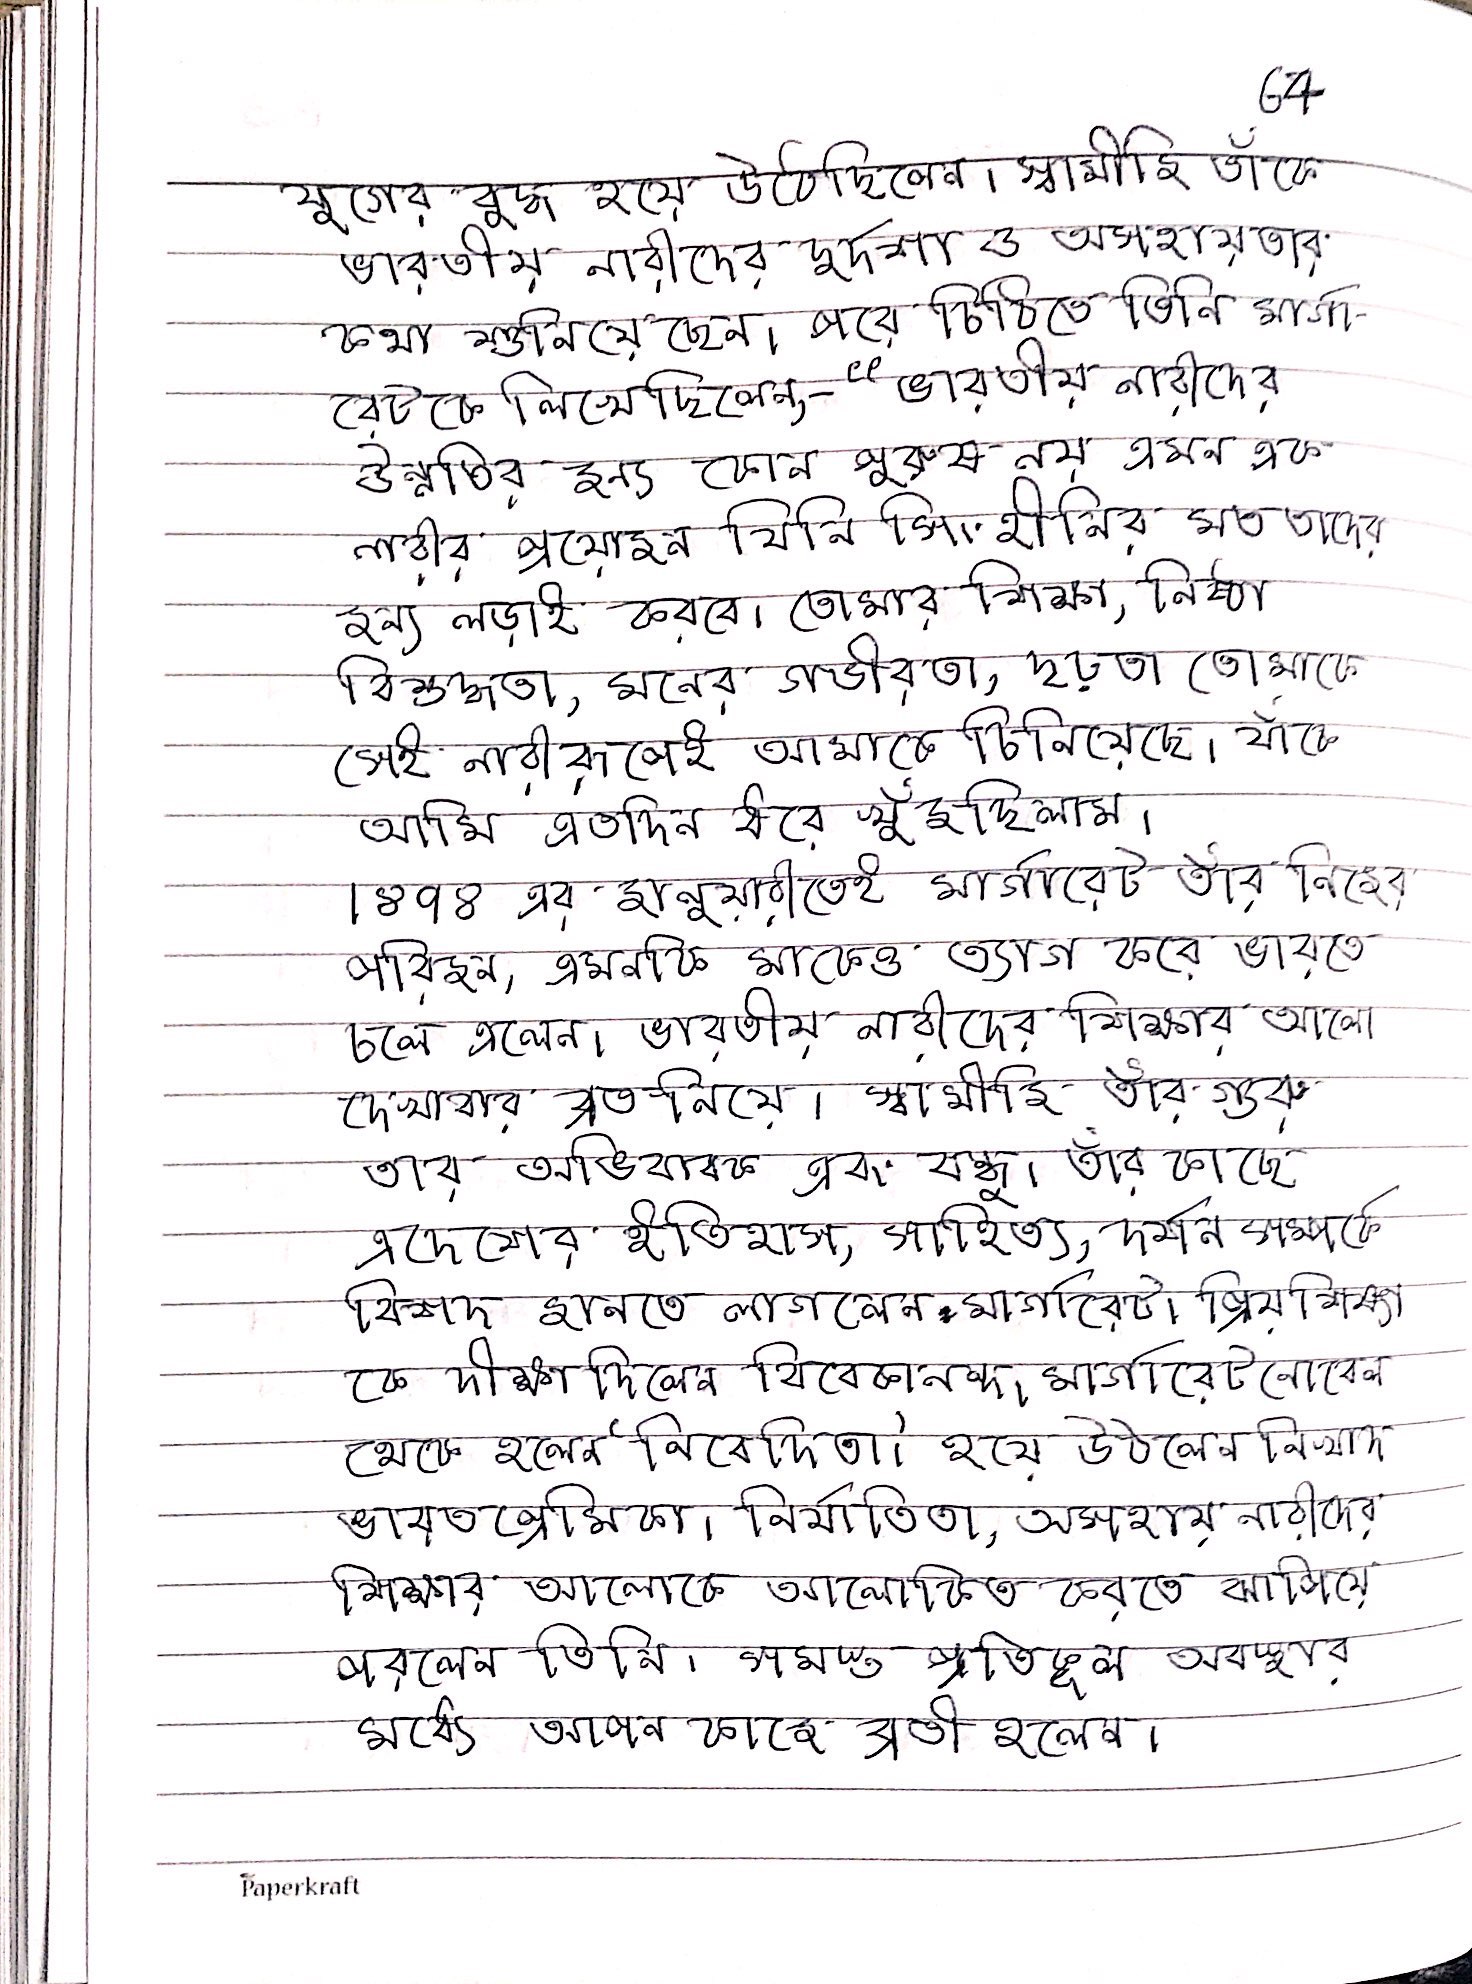 64
যুগের বুদ্ধ হয়ে উঠেছিলেন। স্বামীজি তাঁকে
ভারতীয় নারীদের দুর্দশা ও অসহায়তার
কথা শুনিয়েছেন। পরে চিঠিতে তিনি মার্গা-
রেটকে লিখেছিলেন,- “ভারতীয় নারীদের
উন্নতির জন্য কোন পুরুষ নয় এমন এক
নারীর প্রয়োজন যিনি সিংহীনির মত তাদের
জন্য লড়াই করবে। তোমার শিক্ষা, নিষ্ঠা
বিশুদ্ধতা, মনের গভীরতা, দৃঢ়তা তোমাকে
সেই নারীরূপেই আমাকে চিনিয়েছে। যাঁকে
আমি এতদিন ধরে খুঁজছিলাম।
1898 এর জানুয়ারীতেই মার্গারেট তাঁর নিজের
পরিজন, এমনকি মাকেও ত্যাগ করে ভারতে
চলে এলেন। ভারতীয় নারীদের শিক্ষার আলো
দেখাবার ব্রত নিয়ে। স্বামীজি তাঁর গুরু
তার অভিবাবক এবং বন্ধু। তাঁর কাছে
এদেশের ইতিহাস, সাহিত্য, দর্শন সম্পর্কে
বিশদ জানতে লাগলেন মার্গারেট। প্রিয় শিষ্যা
কে দীক্ষা দিলেন বিবেকানন্দ, মার্গারেট নোবেল
থেকে হলেন ‘নিবেদিতা’। হয়ে উঠলেন নিখাদ
ভারতপ্রেমিকা। নির্যাতিতা, অসহায় নারীদের
শিক্ষার আলোকে আলোকিত করতে ঝাপিয়ে
পরলেন তিনি। সমস্ত প্রতিকূল অবস্থার
মধ্যে আপন কাজে ব্রতী হলেন।
Paperkraft